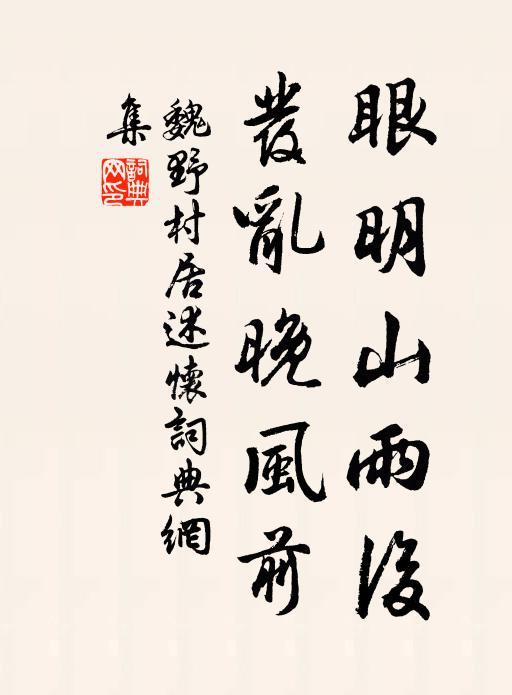 眼明山雨後
發亂晚風前
魏野村居述懷詞典網
集
詞典
网印